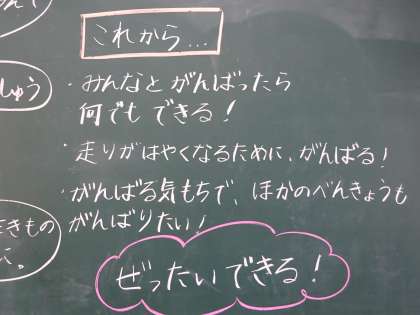 これから…
しゅう
・みんなと がんばったら
何でも できる!
・走りが はやくなるために、がんばる!
・がんばる気もちで、ほかのべんきょうも
がんばりたい!
きもの
ぜったいできる!